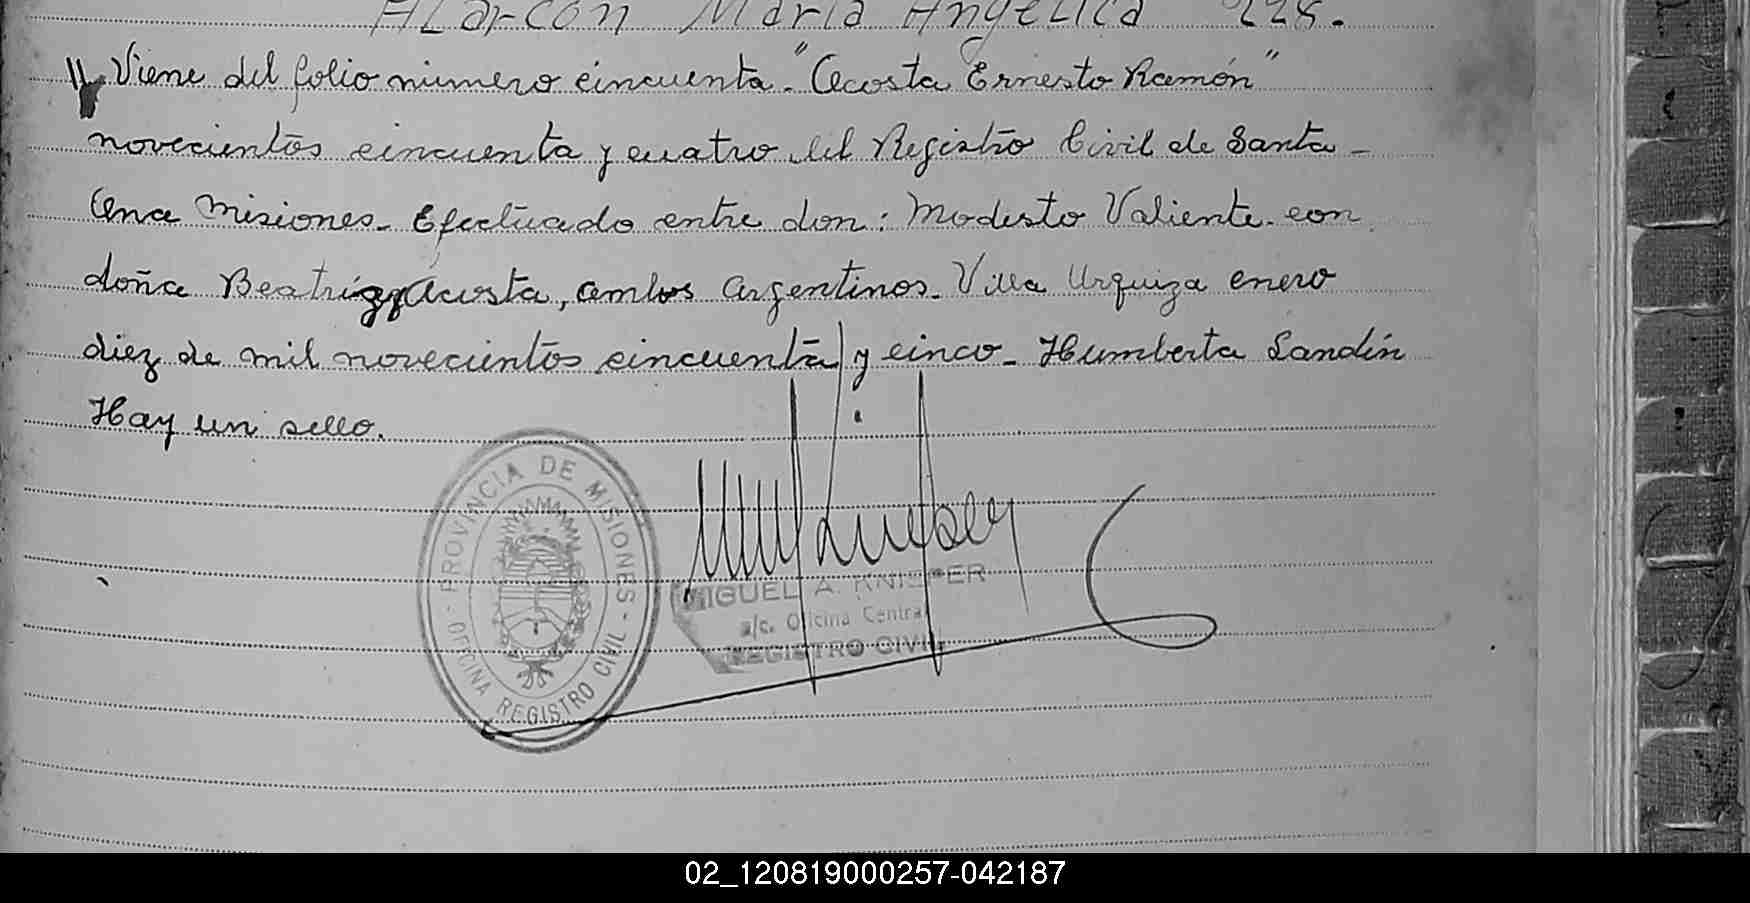 Alarcón María Angélica 228.
Viene del folio número cincuenta. "Acosta Ernesto Ramón"
novecientos cincuenta y cuatro del Registro Civil de Santa -
Ana Misiones. Efectuado entre don: Modesto Valiente. con
doña Beatríz Acosta, ambos argentinos. Villa Urquiza enero
diez de mil novecientos cincuenta y cinco - Humberta Landín
Hay un sello.
PROVINCIA DE MISIONES - OFICINA REGISTRO CIVIL -
MIGUEL A. KNIEPER
a/c. Oficina Central
REGISTRO CIVIL
02_120819000257-042187